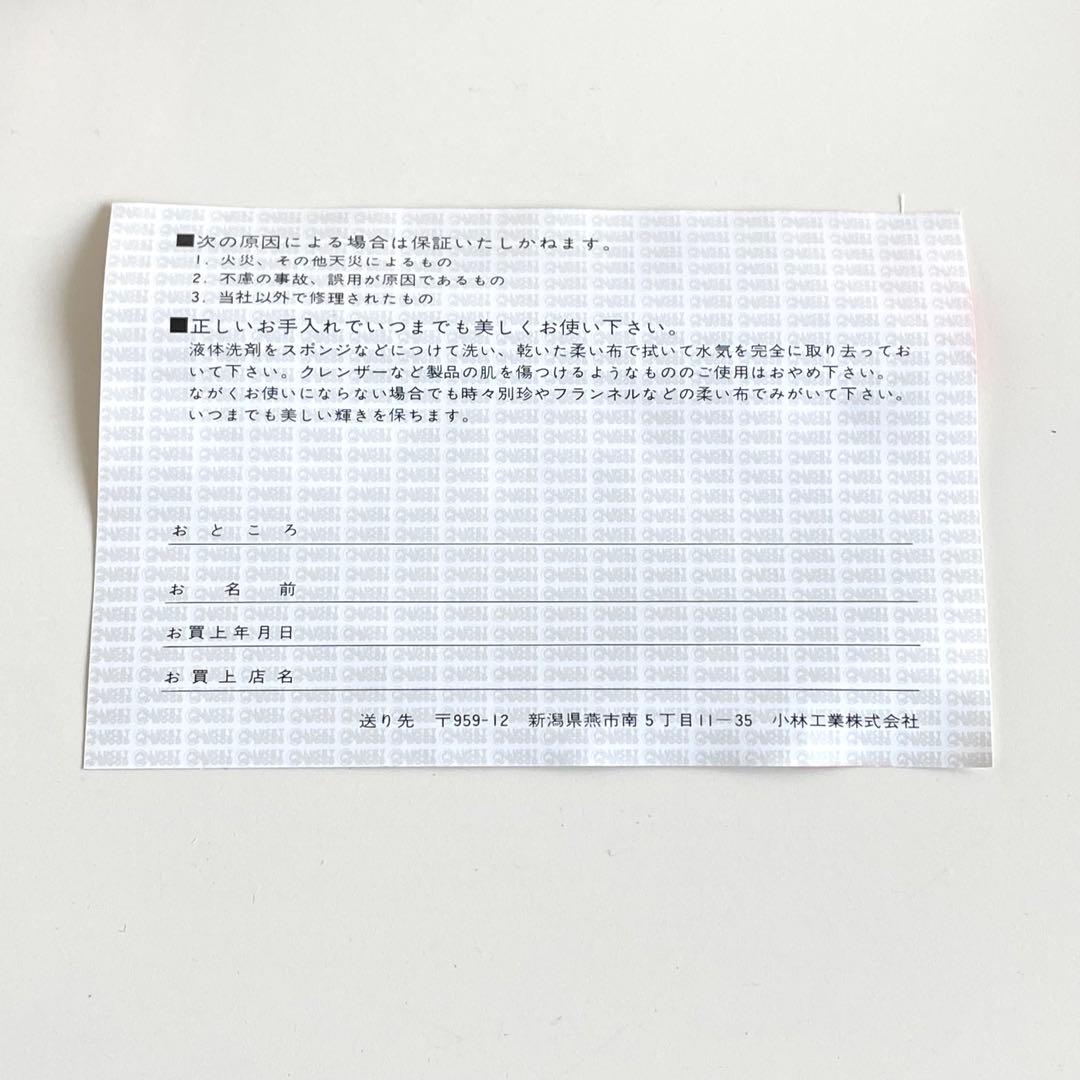 ■次の原因による場合は保証いたしかねます。
1. 火災、その他天災によるもの
2. 不慮の事故、誤用が原因であるもの
3. 当社以外で修理されたもの
■正しいお手入れでいつまでも美しくお使い下さい。
液体洗剤をスポンジなどにつけて洗い、乾いた柔い布で拭いて水気を完全に取り去ってお
いて下さい。クレンザーなど製品の肌を傷つけるようなもののご使用はおやめ下さい。
ながくお使いにならない場合でも時々別珍やフランネルなどの柔い布でみがいて下さい。
いつまでも美しい輝きを保ちます。
おところ
お名前
お買上年月日
お買上店名
送り先 〒959-12 新潟県燕市南5丁目11-35 小林工業株式会社